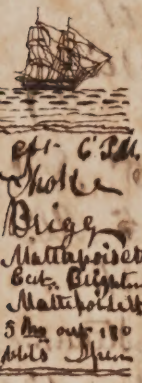 at 6 P.M.
Spoke
Brigg
Mattapoisett
Capt. Brightn
Mattapoisett
5 ms out 180
bbls Sperm